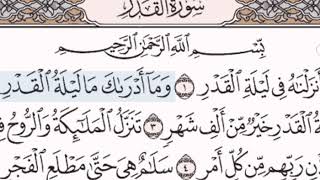 سُورَةُ الْقَدْرِ
بِسْمِ اللَّهِ الرَّحْمَٰنِ الرَّحِيمِ
أَنزَلْنَٰهُ فِى لَيْلَةِ الْقَدْرِ ١ وَمَا أَدْرَىٰكَ مَا لَيْلَةُ الْقَدْرِ
الْقَدْرِ خَيْرٌ مِّنْ أَلْفِ شَهْرٍ ٣ تَنَزَّلُ الْمَلَٰٓئِكَةُ وَالرُّوحُ
رَبِّهِم مِّن كُلِّ أَمْرٍ ٤ سَلَٰمٌ هِىَ حَتَّىٰ مَطْلَعِ الْفَجْرِ